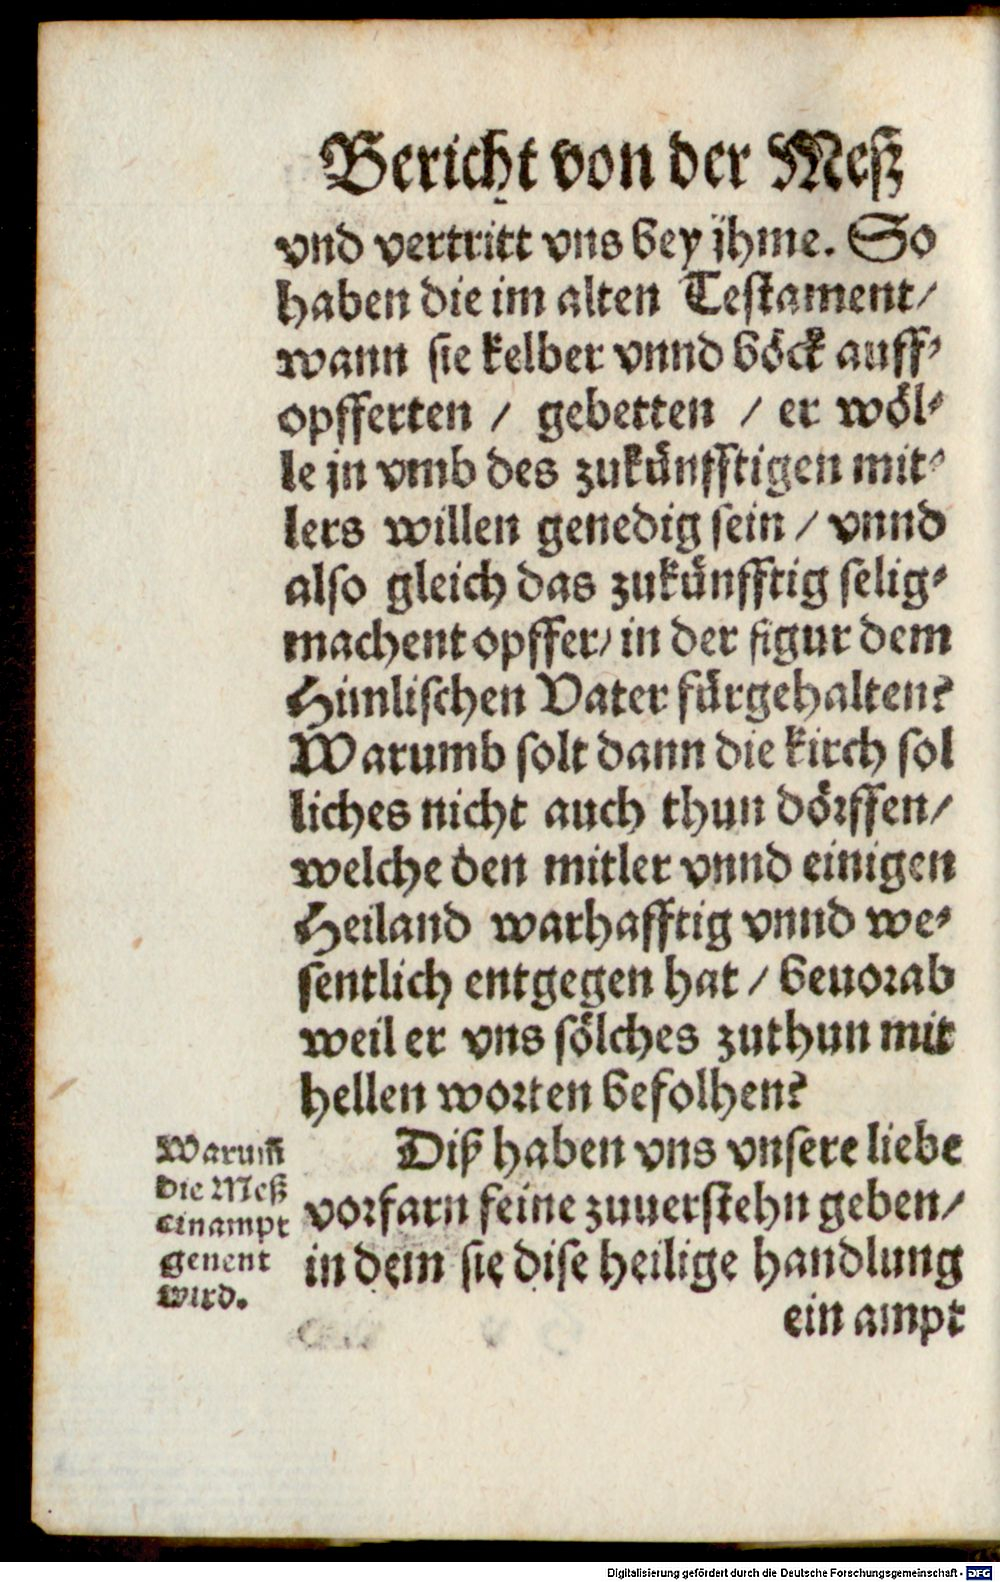 Bericht von der Meß
vnd vertritt vns bey jhme. So
haben die im alten Testament/
wann sie kelber vnnd böck auff⸗
opfferten / gebetten / er wöl⸗
le jn vmb des zukünfftigen mit⸗
lers willen genedig sein / vnnd
also gleich das zukünfftig selig⸗
machent opffer/ in der figur dem
Himlischen Vater fürgehalten?
Warumb solt dann die kirch sol
liches nicht auch thun dörffen/
welche den mitler vnnd einigen
Heiland warhafftig vnnd we⸗
sentlich entgegen hat / beuorab
weil er vns sölches zuthun mit
hellen worten befolhen?
Diß haben vns vnsere liebe
vorfarn feine zuuerstehn geben/
in dem sie dise heilige handlung
ein ampt
Warum̃
die Meß
ein ampt
genent
wird.
Digitalisierung gefördert durch die Deutsche Forschungsgemeinschaft - DFG